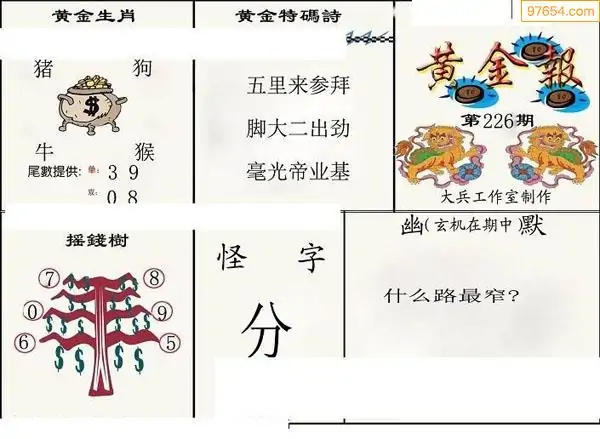 97654.com
黄金生肖
猪 狗
$
牛 猴
尾數提供: 单: 3 9
双: 0 8
黄金特碼詩
五里来参拜
脚大二出劲
毫光帝业基
黄金報
第226期
大兵工作室制作
摇錢樹
7 8
0 9
6 5
$ $ $ $ $ $ $ $ $ $
怪 字
分
幽(玄机在期中)默
什么路最窄?